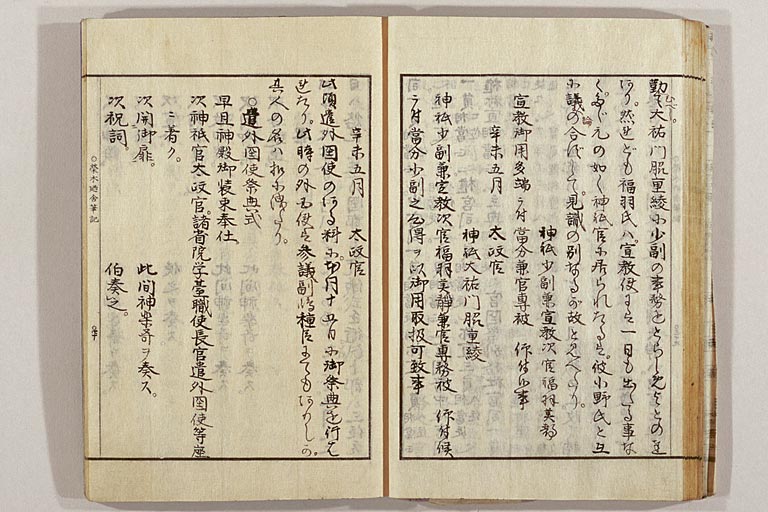 勤候大祐門脇重綾に少副の事務をとらしむるとの事
なり。然れども福羽氏ハ、宣教使には一日も出たる事な
く、もとの如く神祇官に居られたるは、彼小野氏と互
に議の合はずして、見識の別なるが故と見へたり。
神祇少副兼宣教次官福羽美静
宣教御用多端ニ付当分兼官専被 仰付候事
辛未五月 太政官
神祇大祐門脇重綾
神祇少副兼宣教次官福羽美静兼官専務被 仰付候
ニ付当分少副之心得ヲ以御用取扱可致事
辛未五月 太政官
此頃遣外国使のある料に、四月十五日に御祭典を行は
せたり。此時の外国使は参議副島種臣にてもありしか。
其人の名ハ
○遣外国使祭典式
早旦神殿御装束奉仕
次神祇官太政官諸省院学台職使長官遣外国使等座
ニ着ク。
次開御扉。 此間神楽哥ヲ奏ス。
次祝詞 伯奏之。
○栄木廼舎筆記